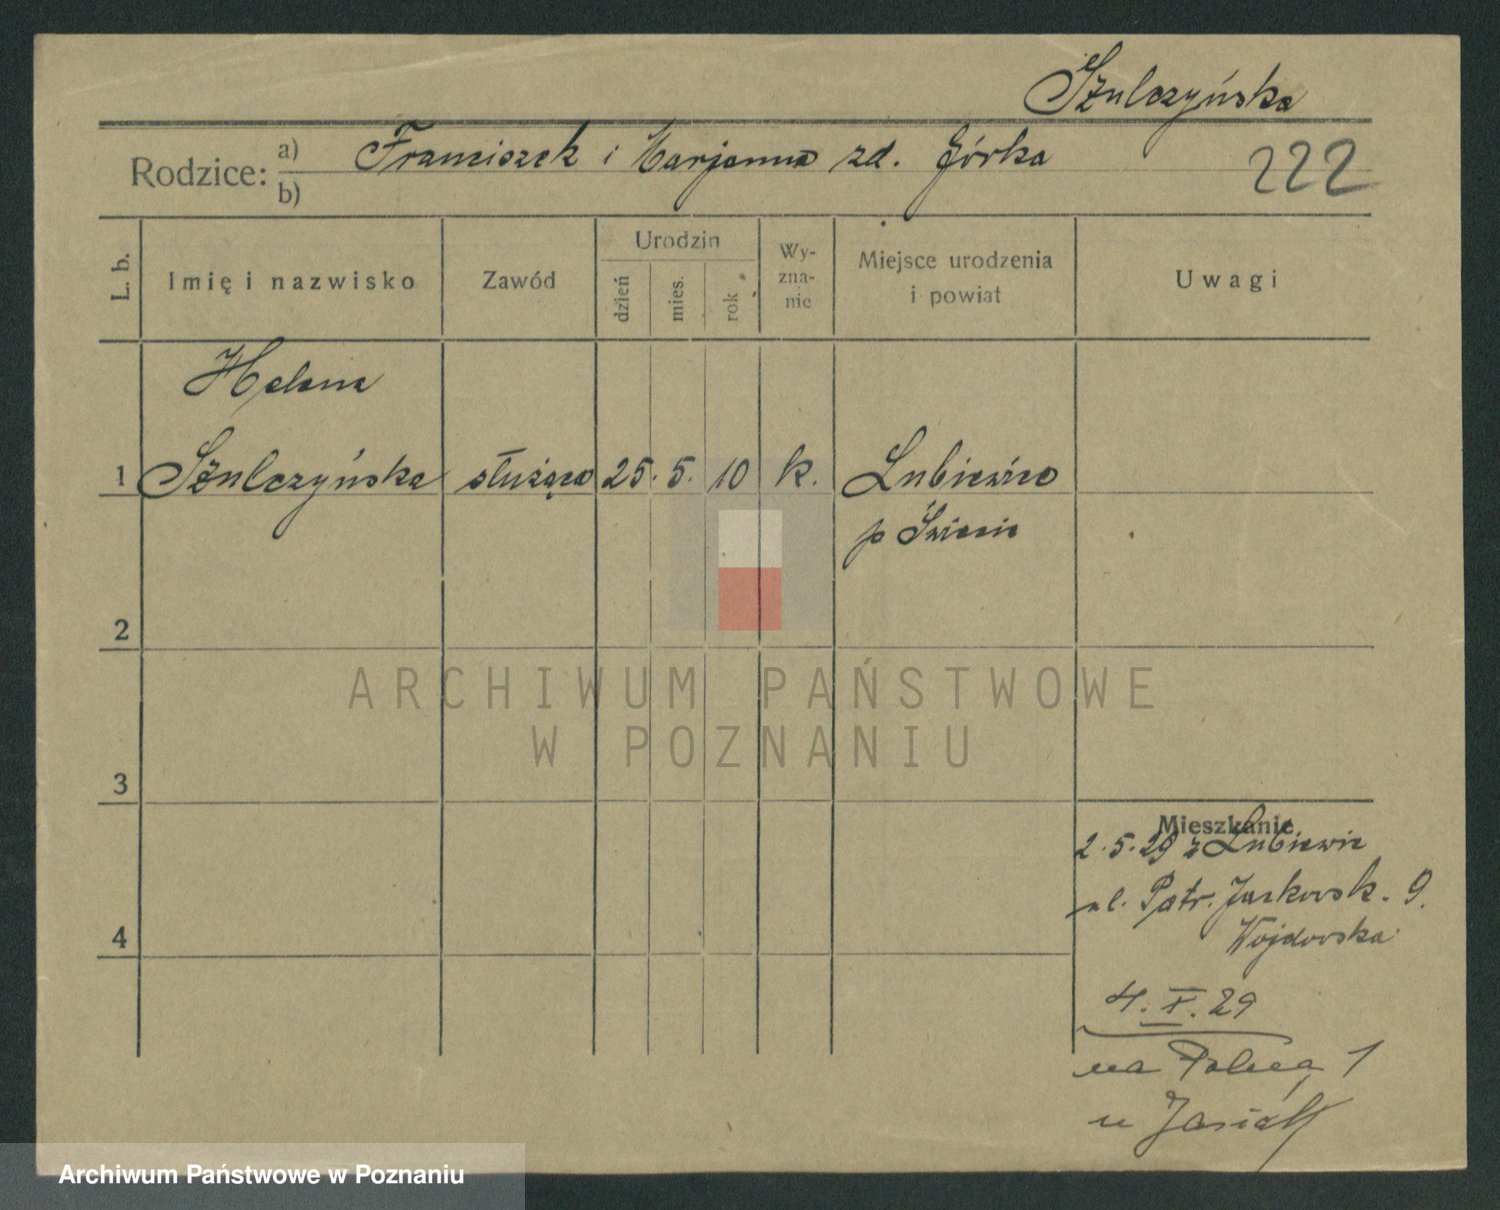 Szulczyńska
Rodzice: a) Franciszek i Marjanna zd. Górka
b)
222
L. b. Imię i nazwisko Zawód Urodzin dzień mies. rok Wy-zna-nie Miejsce urodzenia i powiat Uwagi
Helena
1 Szulczyńska służąca 25. 5. 10 k. Lubiewice
p Świecie
2
ARCHIWUM PAŃSTWOWE
W POZNANIU
3
Mieszkanie
2.5.29 z Lubiewic
ul. Patr. Jackowsk. 9.
Wojdowska
4. X. 29
na Polną 1
u
4
Archiwum Państwowe w Poznaniu